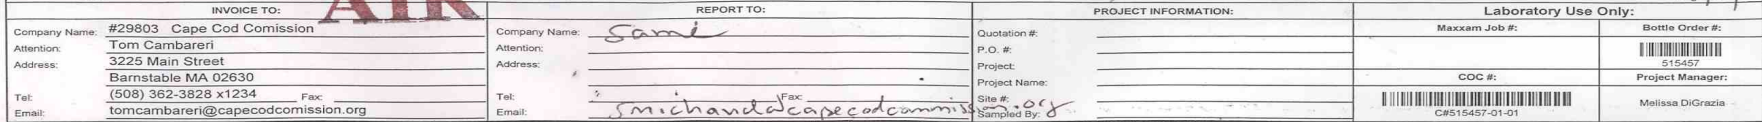 AIR
INVOICE TO:
Company Name: #29803 Cape Cod Comission
Attention: Tom Cambareri
Address: 3225 Main Street
Barnstable MA 02630
Tel: (508) 362-3828 x1234 Fax:
Email: tomcambareri@capecodcomission.org
REPORT TO:
Company Name: Same
Attention:
Address:
Tel: Fax:
Email: smichaud@capecodcommission.org
PROJECT INFORMATION:
Quotation #:
P.O. #:
Project:
Project Name:
Site #:
Sampled By:
Laboratory Use Only:
Maxxam Job #: Bottle Order #:
515457
COC #: Project Manager:
C#515457-01-01 Melissa DiGrazia